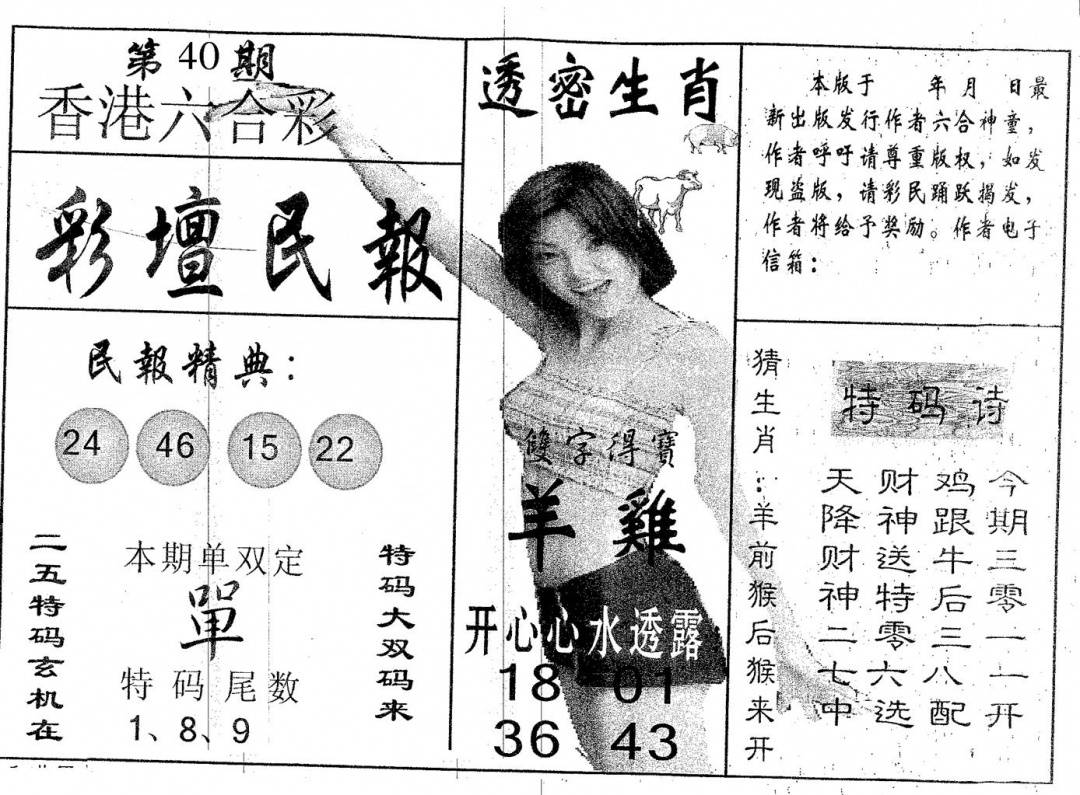 第40期
香港六合彩
彩壇民報
民報精典：
24 46 15 22
二五特码玄机在
本期单双定
單
特码尾数
1、8、9
特码大双码来
透密生肖
雙字得寶
羊雞
开心心水透露
18 01
36 43
本版于 年月 日最
新出版发行作者六合神童，
作者呼吁请尊重版权，如发
现盗版，请彩民踊跃揭发，
作者将给予奖励。作者电子
信箱：
猜生肖：羊前猴后猴来开
特码诗
今期三零一一开
鸡跟牛后三八配
财神送特零六选
天降财神二七中